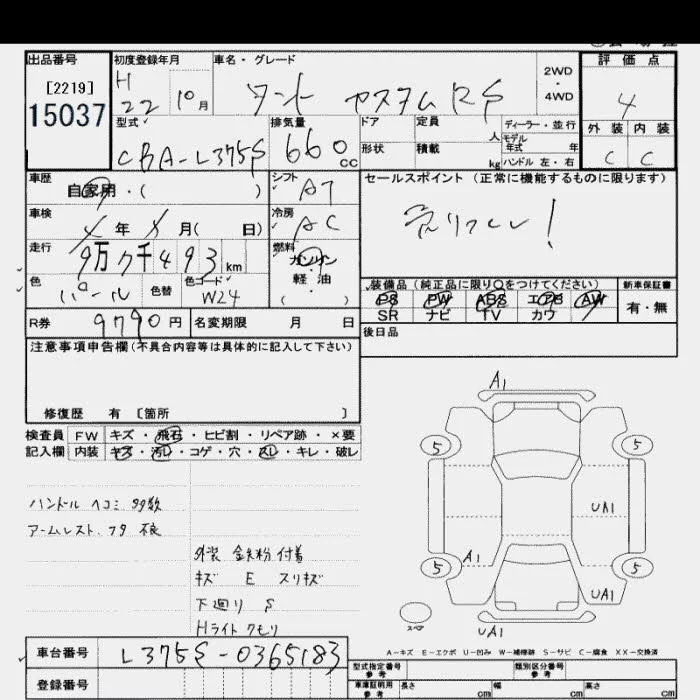 出品番号 初度登録年月 車名・グレード 評価点
[2219] 15037
H 22 10月
タント カスタムRS
2WD・4WD
4
外装 内装
C C
型式 排気量 ドア 定員 人 ディーラー・並行
CBA-L375S 660cc
形状 積載 kg モデル年式 年
ハンドル 左・右
車歴 シフト セールスポイント(正常に機能するものに限ります)
自家用・( ) AT
売りつくし!
車検 冷房
年 月( 日) AC
走行 燃料
9万7千493km ガソリン
軽・油
( ・ )
色 色替 色コード
パール W24
装備品(純正品に限り○をつけてください) 新車保証書
PS PW ABS エアB AW 有・無
SR ナビ TV カワ
R券 9790円 名変期限 月 日
後日品
注意事項申告欄(不具合内容等は具体的に記入して下さい)
修復歴 有 〔箇所 〕
検査員 FW キズ・飛石・ヒビ割・リペア跡・×要
記入欄 内装 キズ・汚レ・コゲ・穴・スレ・キレ・破レ
ハンドル ヘコミ 多数
アームレスト フタ 不良
外装 鉄粉付着
キズ E スリキズ
下廻り S
Hライト クモリ
A1
5 5
UA1
A1
5 5
UA1
スペア
UA1
A-キズ E-エクボ U-凹み W-補修跡 S-サビ C-腐食 XX-交換済
車台番号 L375S-0365183
登録番号
型式指定番号 参考 類別区分番号 参考
車庫証明用 参考 長さ cm 幅 cm 高さ cm